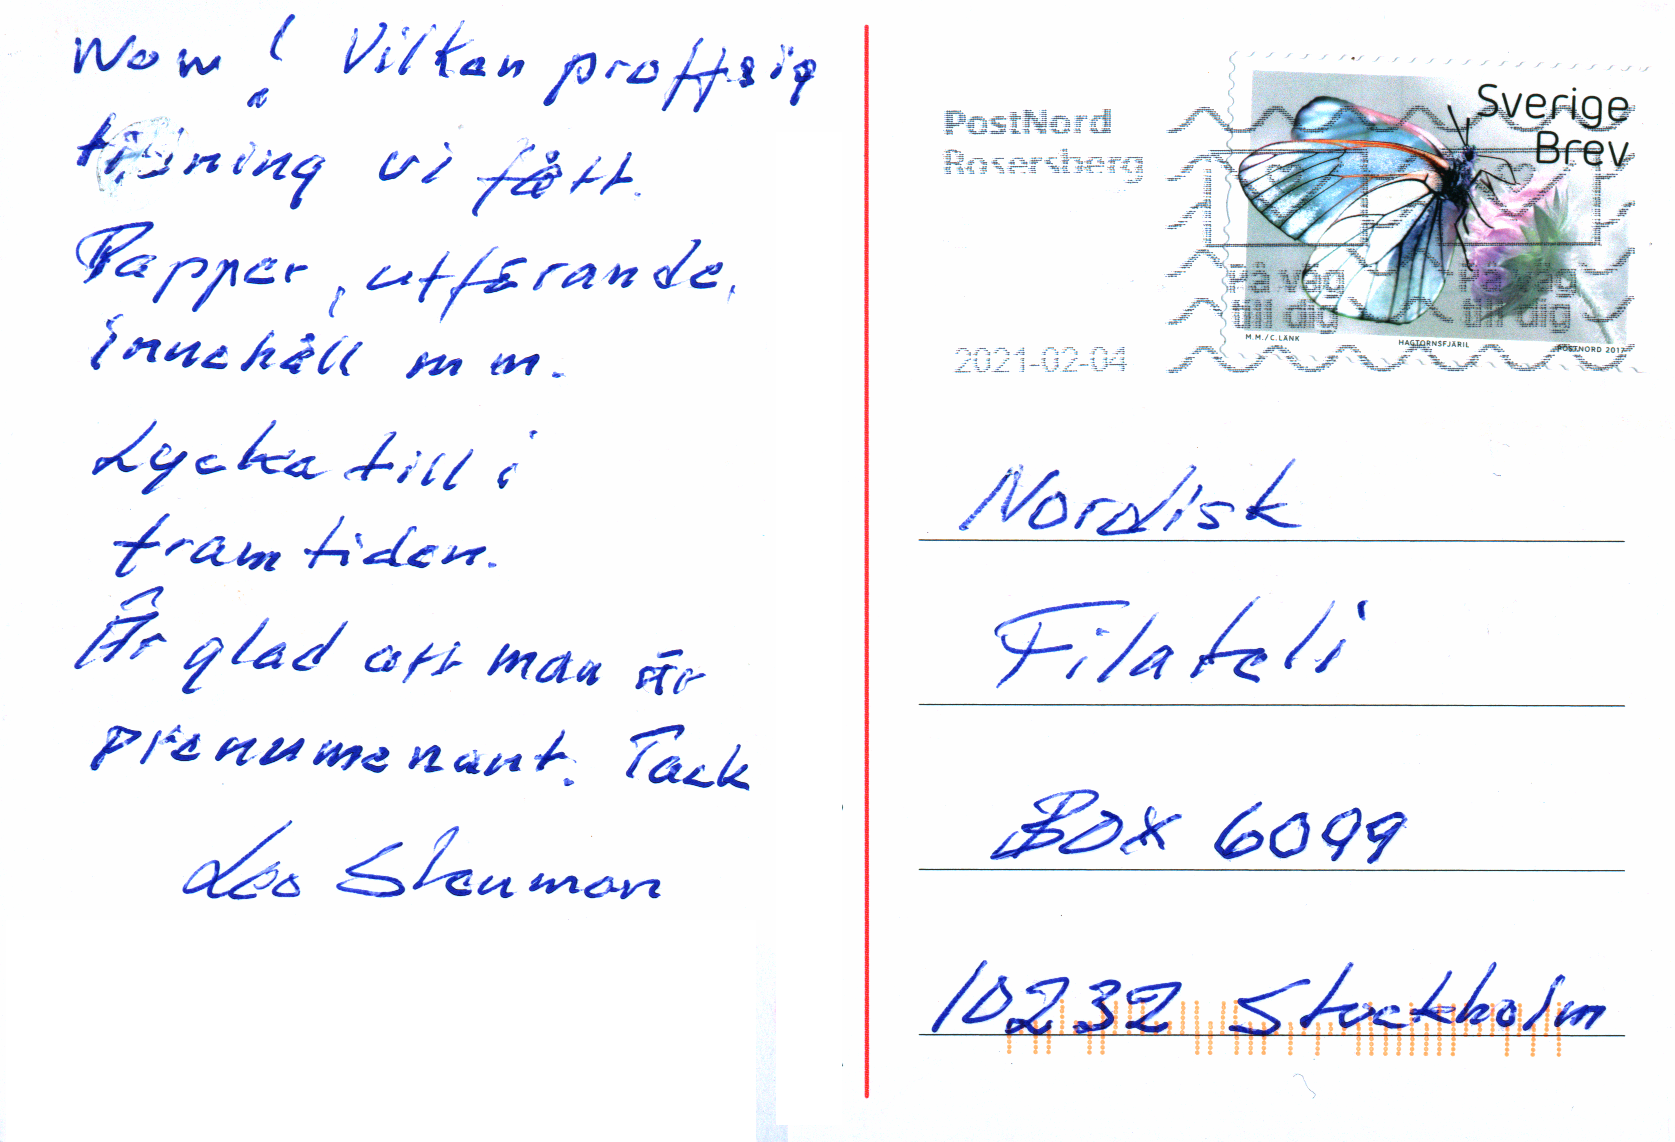 Wow! Vilken proffsig
tidning vi fått.
Papper, utförande,
innehåll m m.
Lycka till i
framtiden.
Är glad att man är
prenumenant. Tack
Leo
PostNord
Rosersberg
2021-02-04
Sverige
Brev
På väg
till dig
På väg
till dig
M.M./C.LÄNK
HAGTORNSFJÄRIL
POSTNORD 2017
Nordisk
Filateli
Box 6099
10232 Stockholm